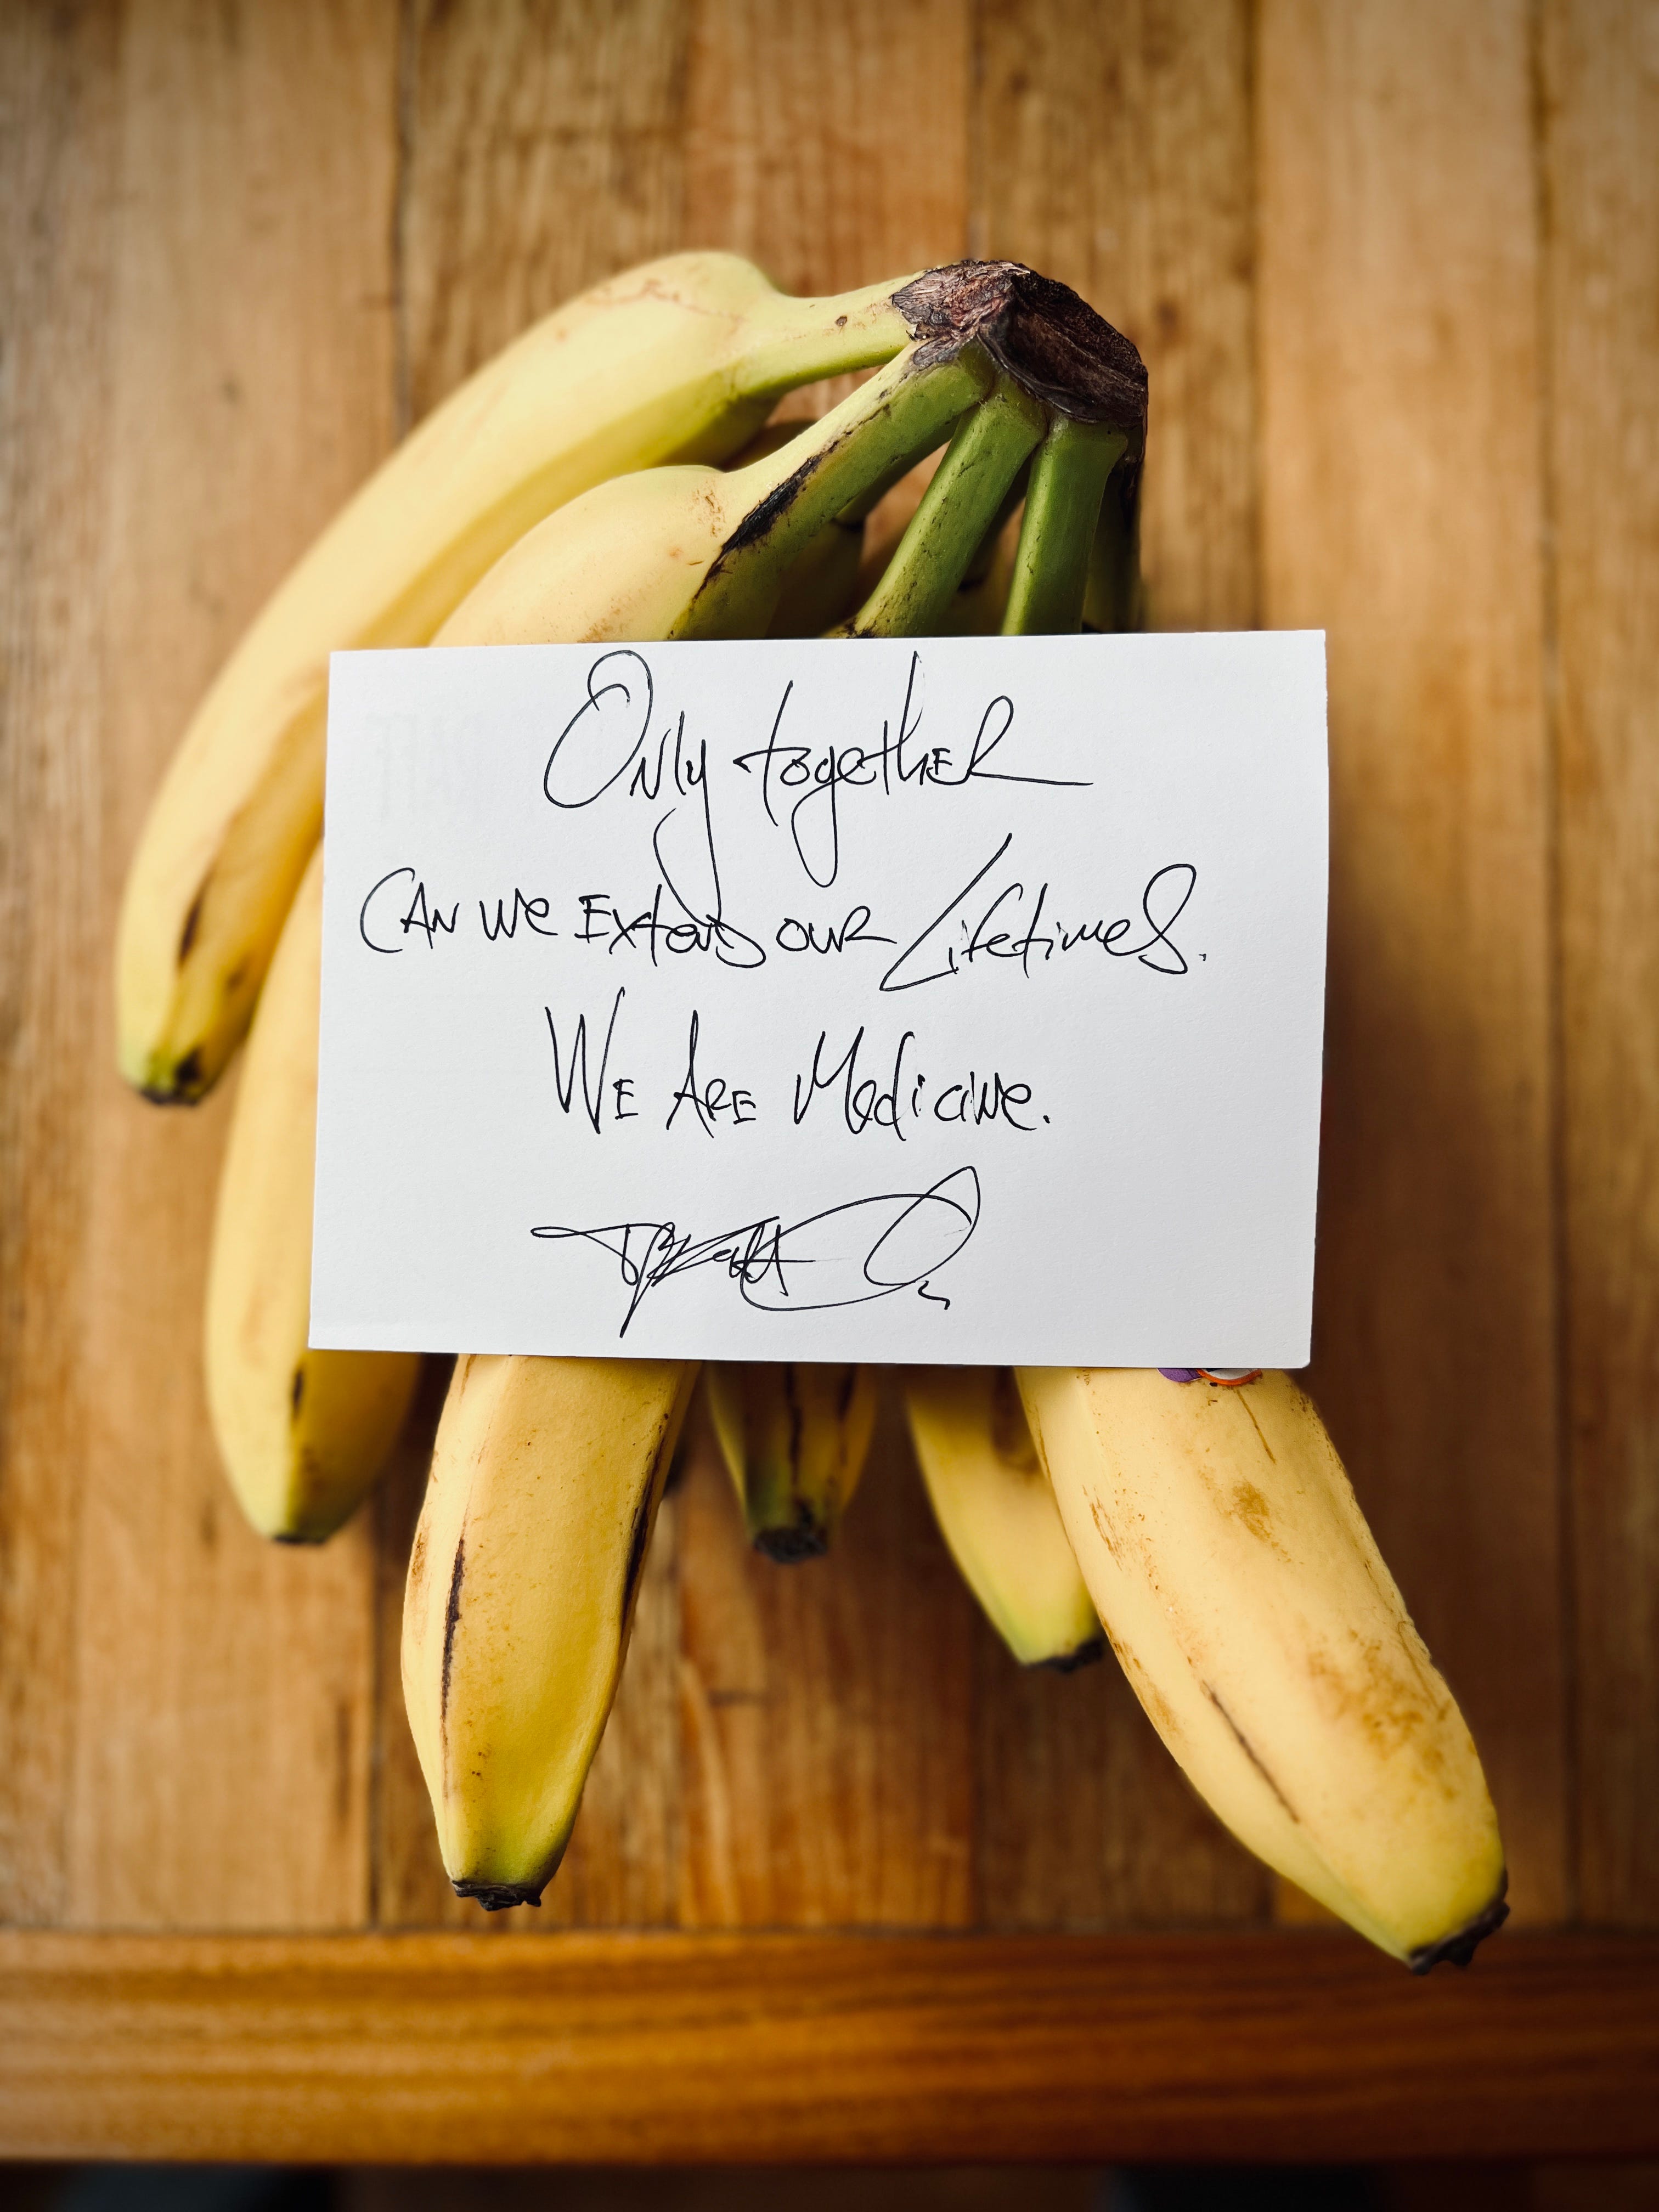 Only together
CAN we Extend our Lifetimes.
WE ARE Medicine.